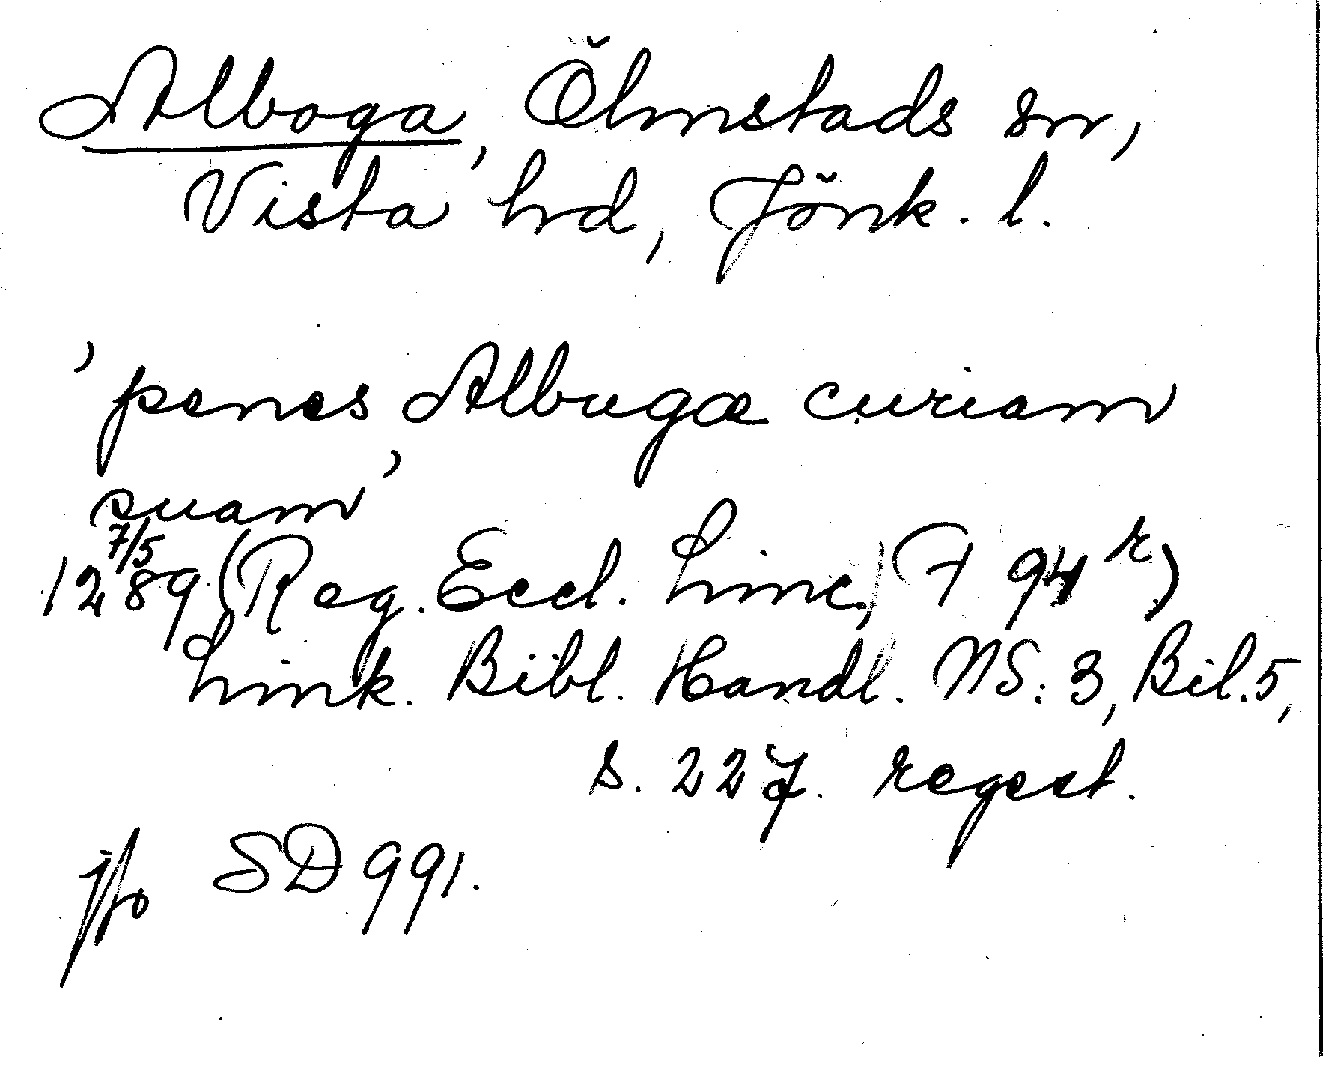 Alboga, Ölmstads sn,
Vista hrd, Jönk. l.
'penes Albugæ curiam
suam'
7/5
1289 (Reg. Eccl. Linc, F 94 r)
Link. Bibl. Handl. NS. 3, Bil. 5,
s. 227. regest.
jfr SD 991.